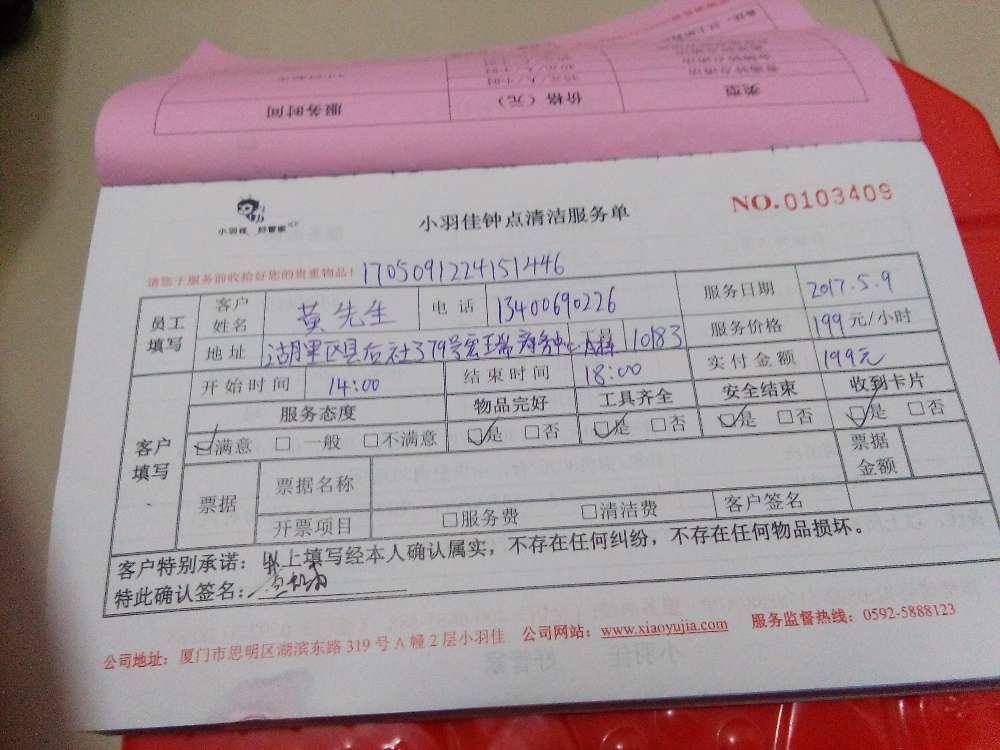 类型 价格（元） 服务时间
小羽佳 好管家
小羽佳钟点清洁服务单
NO.0103409
请您于服务前收拾好您的贵重物品！
1705091224151446
员工填写 客户姓名 黄先生 电话 13400690226 服务日期 2017.5.9
地址 湖里区县后社379号宏玉常商务中心A栋 10183 服务价格 199元/小时
开始时间 14:00 结束时间 18:00 实付金额 199元
客户填写 服务态度 物品完好 工具齐全 安全结束 收到卡片
☑满意 □一般 □不满意 ☑是 □否 ☑是 □否 ☑是 □否 ☑是 □否
票据 票据名称 票据金额
开票项目 □服务费 □清洁费 客户签名
客户特别承诺：以上填写经本人确认属实，不存在任何纠纷，不存在任何物品损坏。
特此确认签名：
公司地址：厦门市思明区湖滨东路319号A幢2层小羽佳 公司网站：www.xiaoyujia.com 服务监督热线：0592-5888123